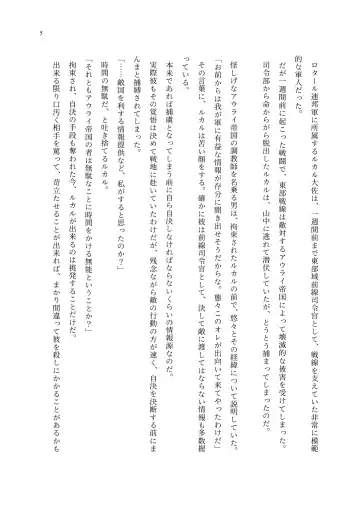 ロタール連邦軍に所属するルカル大佐は、一週間前まで東部域前線司令官として、戦線を支えていた非常に模範
的な軍人だった。
だが一週間前に起こった戦闘で、東部戦線は敵対するアウライ帝国によって壊滅的な被害を受けてしまった。
司令部から命からがら脱出したルカルは、山中に逃れて潜伏していたが、とうとう捕まってしまったのだ。
怪しげなアウライ帝国の調教師を名乗る男は、拘束されたルカルの前で、悠々とその経緯について説明していた。
「お前からは我が軍に有益な情報が存分に聞き出せそうだからな。態々このオレが出向いて来てやったわけだ」
その言葉に、ルカルは苦い顔をする。確かに彼は前線司令官として、決して敵に渡してはならない情報も多数握
っている。
本来であれば捕虜となってしまう前に自ら自決しなければならないくらいの情報源なのだ。
実際彼もその覚悟は決めて戦地に赴いていたわけだが、残念ながら敵の行動の方が速く、自決を決断する前にま
んまと捕縛されてしまった。
「……敵国を利する情報提供など、私がすると思ったのか？」
時間の無駄だ、と吐き捨てるルカル。
「それともアウライ帝国の者は無駄なことに時間をかける無能ということか？」
拘束され、自決の手段も奪われた今、ルカルが出来るのは挑発することだけだ。
出来る限り口汚く相手を罵って、苛立たせることが出来れば、まかり間違って彼を殺しにかかることがあるかも
5